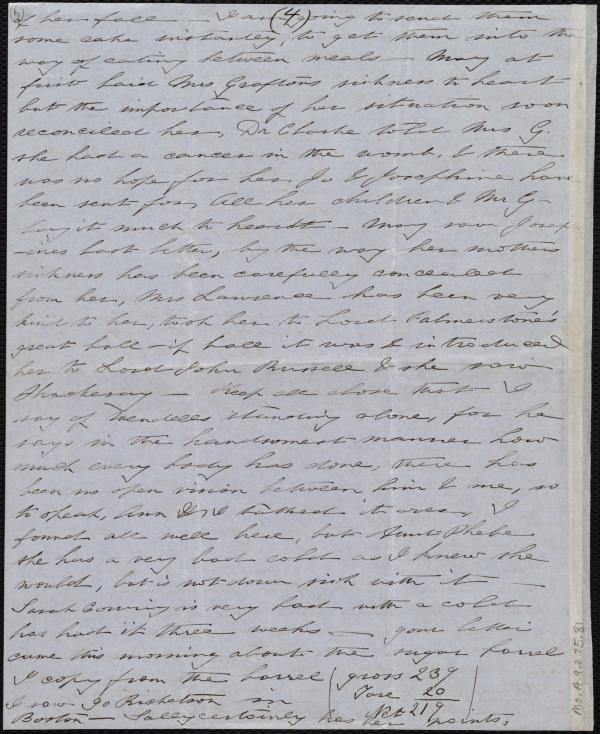 of her fall — I am going to send them
(4)
some cake instantly, to get them into the
way of eating between meals — Mary at
first laid Mrs Graftons sickness to heart
but the importance of her situation soon
reconciled her, Dr Clarke told Mrs G.
she had a cancer in the womb, & there
was no hope for her, Jo & Josephine have
been sent for, All her children & Mr G—
lay it much to heart — Mary saw Joseph
-ines last letter, by the way her mothers
sickness has been carefully concealed
from her, Mrs Lawrence has been very
kind to her, took her to Lord Palmerstone's
great ball — if ball it was & introduced
her to Lord John Russell & she saw
Thackeray — Keep all close that I
say of Wendells standing alone, for he
says in the handsomest manner how
much every body has done, there has
been no open vision between him & me, so
to speak, Ann & I talked it over, I
found all well here, but Aunt Phebe
she has a very bad cold as I knew she
would, but is not down sick with it —
Sarah Cowing is very bad with a cold
has had it three weeks — your letter
came this morning about the sugar barrel
I copy from the barrel ( gross 239
Tare 20
Net 219
I saw Jo Ricketson in
Boston — Sally certainly has her points.
Ms. A.9.2.25.81